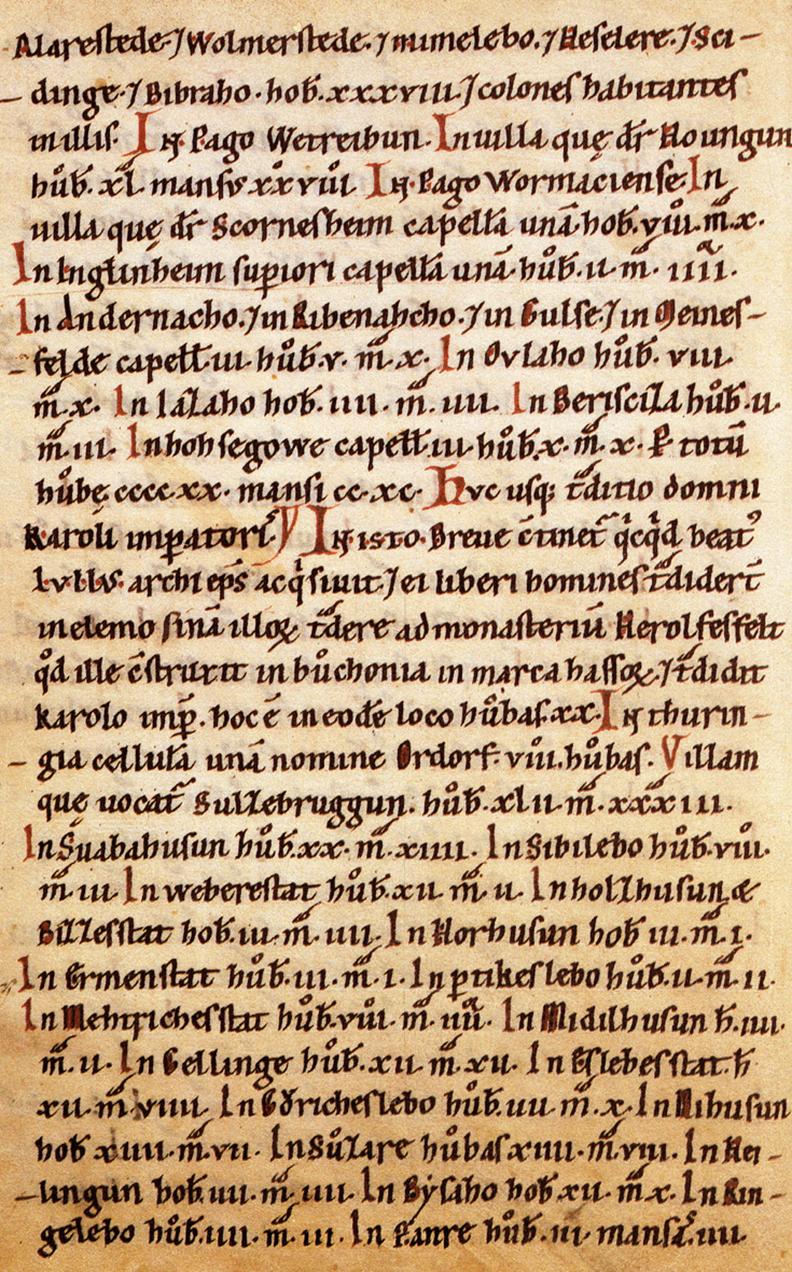 Alarestede.⁊ Wolmerstede.⁊ mimelebo.⁊ Heselere.⁊ Sci-
dinge.⁊ Bibraho. hob̄. xxxviii.⁊ coloneſ habitanteſ
in illiſ. In Pago Wetreibun. In uilla quę dr̄ Houngun
hůb̄. xl. manſv xxviii In Pago Wormaciense. In
uilla quę dr̄ Scorneſheim capellā unā. hob̄. viii. m̄. x.
In Ingłinheim ſupiori capellā unā. hůb̄. ii. m̄. iiii.
In Andernacho.⁊ in Ribenahcho.⁊ in Gulſe.⁊ in Meineſ-
felde capełł. iii. hůb̄. v. m̄. x. In Ovlaho hůb̄. viii
m̄. x. In lalaho hob̄. iiii. m̄. iiii. In Beriſciza hůb̄. ii.
m̄. iii. In hohſegowe capełł. iii. hůb̄. x. m̄. x. P totū
hůbę cccc. xx. manſi cc. xc. Hvc uſq; t̄ditio domni
Karoli impatoriſ In isto. Breue c̄tinet̄ qicqid beatꝰ
lvllvs. archi ep̄s acqiſiuit.⁊ ei liberi homineſ t̄didert̄
in elemo ſinā illoꝝ t̄dere ad monaſteriū Herolfeſfelt
qd ille c̄ſtruxit in bůchonia in marca haſſoꝝ.⁊ t̄didit
karolo imp̄. hoc ē in eodē loco hůbaſ. xx. In thurin-
gia cellulā unā nomine Ordorf. viii. hůbaſ. Villam
quę uocat̄ Sulzebruggun. hůb̄. xlii. m̄. xxxiii.
In Suabahuſun hůb̄. xx. m̄. xiiii. In Sibilebo hůb̄. viii.
m̄. iii In webereſtat hůb̄. xii. m̄. ii. In holzhuſun &
Billeſſtat hob̄. iii. m̄. iiii. In Horhuſun hob̄ iii. m̄. i.
In Ermenſtat hůb̄. iii. m̄. i. In ptikeſlebo hůb̄. ii. m̄. ii.
In Mehtricheſſtat hůb̄. viii. m̄. iiii. In Midilhuſun h̄. iiii.
m̄. ii. In Gellinge hůb̄. xii. m̄. xii. In Eſlebeſſtat. h̄
xii. m̄. viiii. In Gꝺricheſlebo hůb̄. iiii. m̄. x. In Nihuſun
hob̄ xiiii. m̄. vii. In Sůzare hůbaſ xiiii. m̄. viii. In Hei-
lingun hob̄. iiii. m̄. iiii. In Byſaho hob̄ xii. m̄. x. In Rin-
gelebo hůb̄. iiii. m̄. iii. In Vanre hůb̄. iii. manſ. iiii.